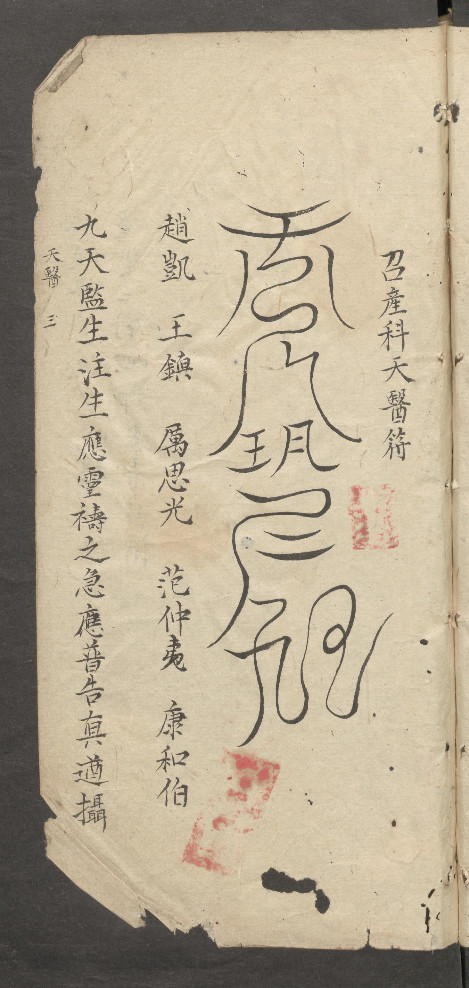 召產科天醫符
趙凱 王鎮 厲思光 范仲夷 康和伯
九天監生注生應靈禱之急應普告真遒攝
天醫 三